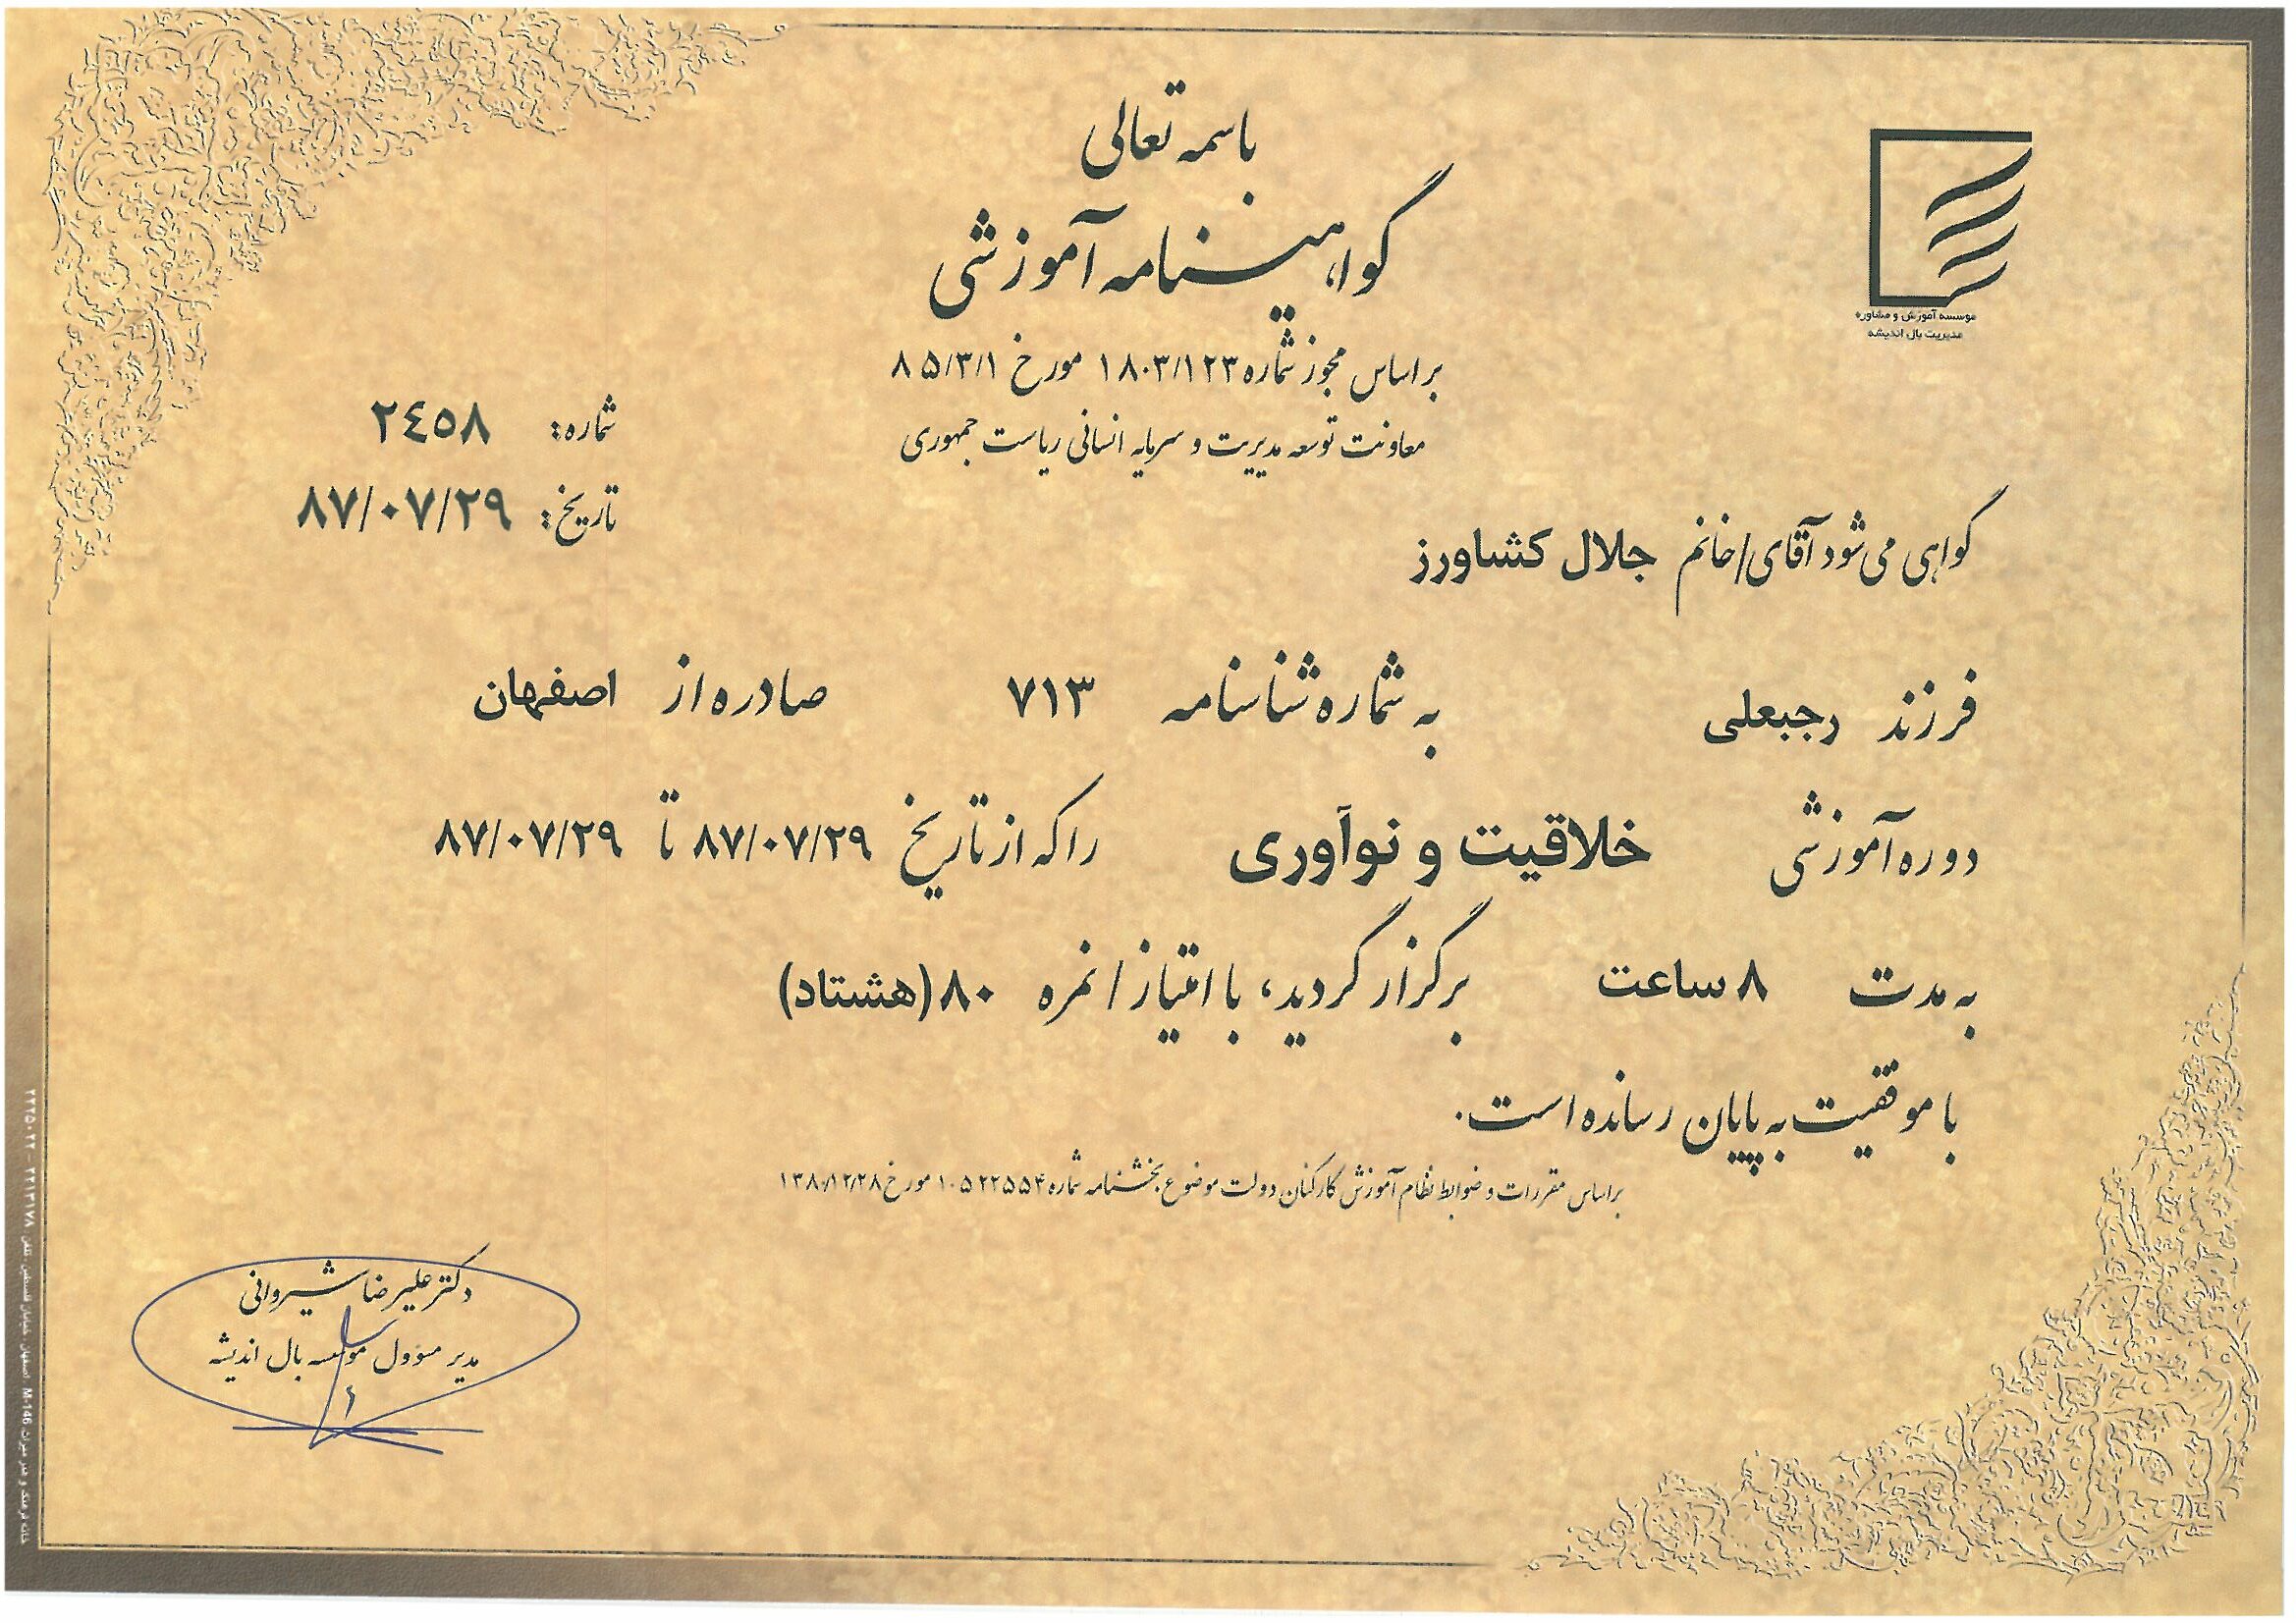 باسمه تعالی
گواهینامه آموزشی
موسسه آموزش و مشاوره
مدیریت بال اندیشه
براساس مجوز شماره ۱۸۰۳/۱۲۳ مورخ ۸۵/۳/۱
معاونت توسعه مدیریت و سرمایه انسانی ریاست جمهوری
شماره: ۲٤۵۸
تاریخ: ۸۷/۰۷/۲۹
گواهی می شود آقای/خانم جلال کشاورز
فرزند رجبعلی به شماره شناسنامه ۷۱۳ صادره از اصفهان
دوره آموزشی خلاقیت و نوآوری را که از تاریخ ۸۷/۰۷/۲۹ تا ۸۷/۰۷/۲۹
به مدت ۸ ساعت برگزار گردید، با امتیاز / نمره ۸۰(هشتاد)
با موفقیت به پایان رسانده است.
براساس مقررات و ضوابط نظام آموزش کارکنان دولت موضوع بخشنامه شماره ۱۰۵۲۲۵۵۴ مورخ ۱۳۸۰/۱۲/۲۸
دکتر علیرضا شیروانی
مدیر مسؤول موسسه بال اندیشه
خانه فرهنگ و هنر میراث M-146 اصفهان . خیابان فلسطین . تلفن